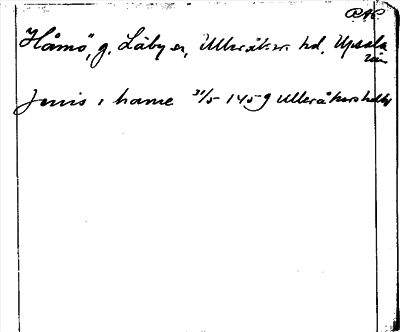 RAP.
"Håmö", g. Läby sn, Ulleråkers hd, Upsala
län
Jenis i hame 31/5 1459 Ulleråkers hdbr